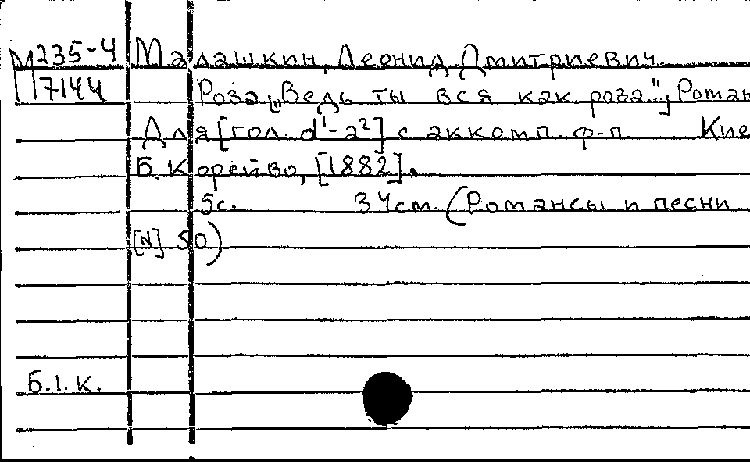 М235-4 Малашкин, Леонид Дмитриевич.
7144 Роза [„Ведь ты вся как роза"]. Роман
Для [гол. d¹-a²] с аккомп. ф-п. Кие
Б. Корейво, [1882].
5с. 34см. (Романсы и песни
[N] 50)
Б.1.к.